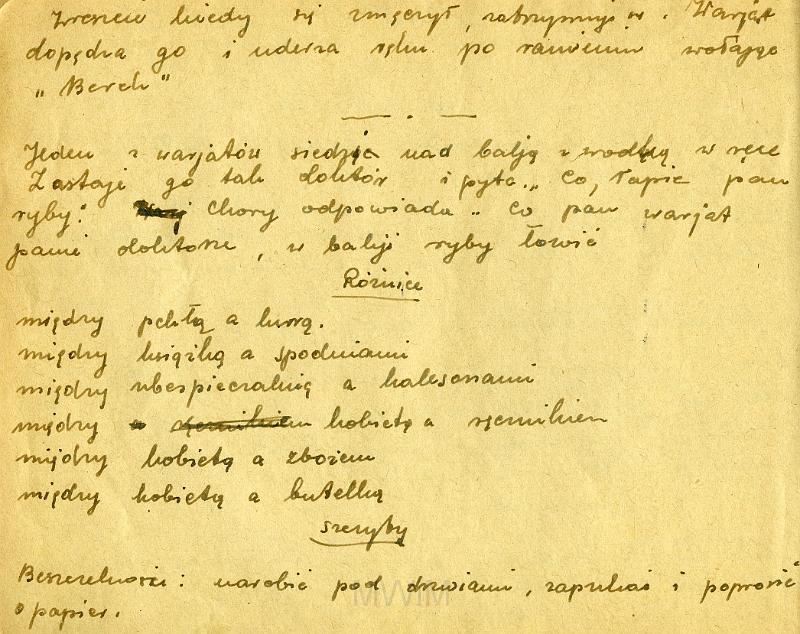 Wreszcie kiedy się zmęczył, zatrzymuje się. Warjat
dopędza go i uderza ręką po ramieniu wołając
„Berek"
Jeden z warjatów siedzi nad balją z wędką w ręce
Zastaje go tak doktór i pyta „Co, łapie pan
ryby" chory odpowiada „Co pan warjat
panie doktorze, w balji ryby łowić
Różnice
między pchłą a kurą.
między książką a spodniami
między ubezpieczalnią a kalesonami
między kobietą a ręcznikiem
między kobietą a zbożem
między kobietą a butelką
szczyty
Bezczelności: narobić pod drzwiami, zapukać i poprosić
o papier.
MWIM